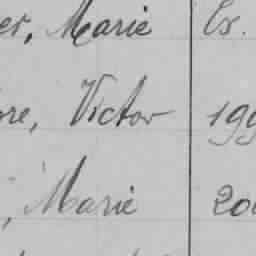 er, Marie Cr.
re, Victor 199
, Marie 200